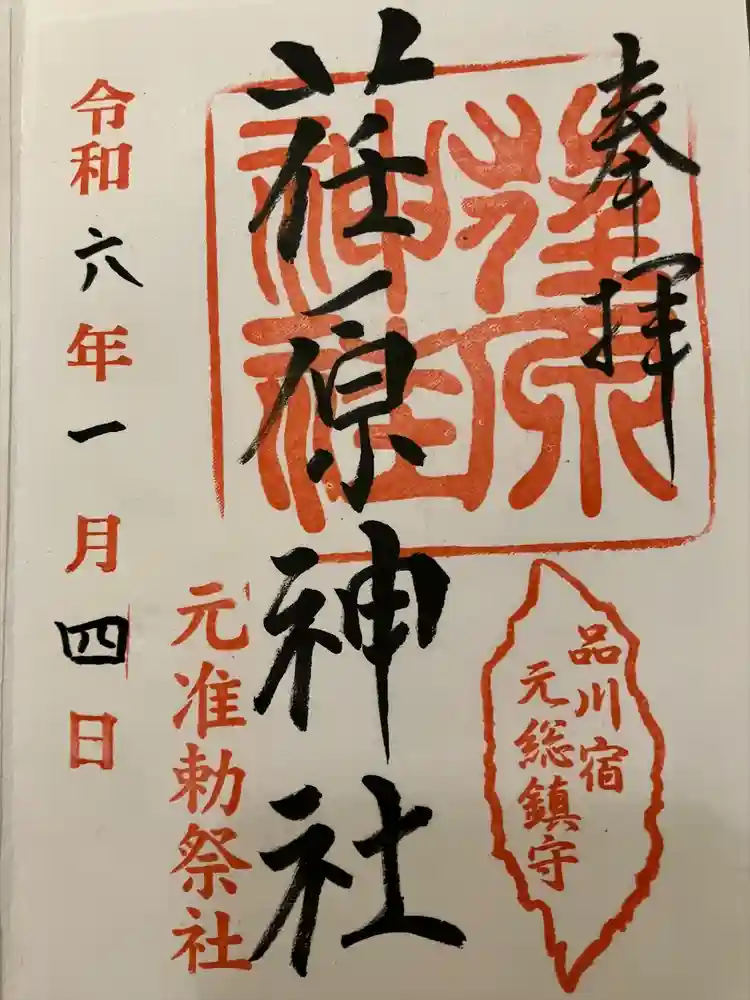 奉拝
荏原
神社
品川宿
元総鎮守
荏原神社
元准勅祭社
令和六年一月四日